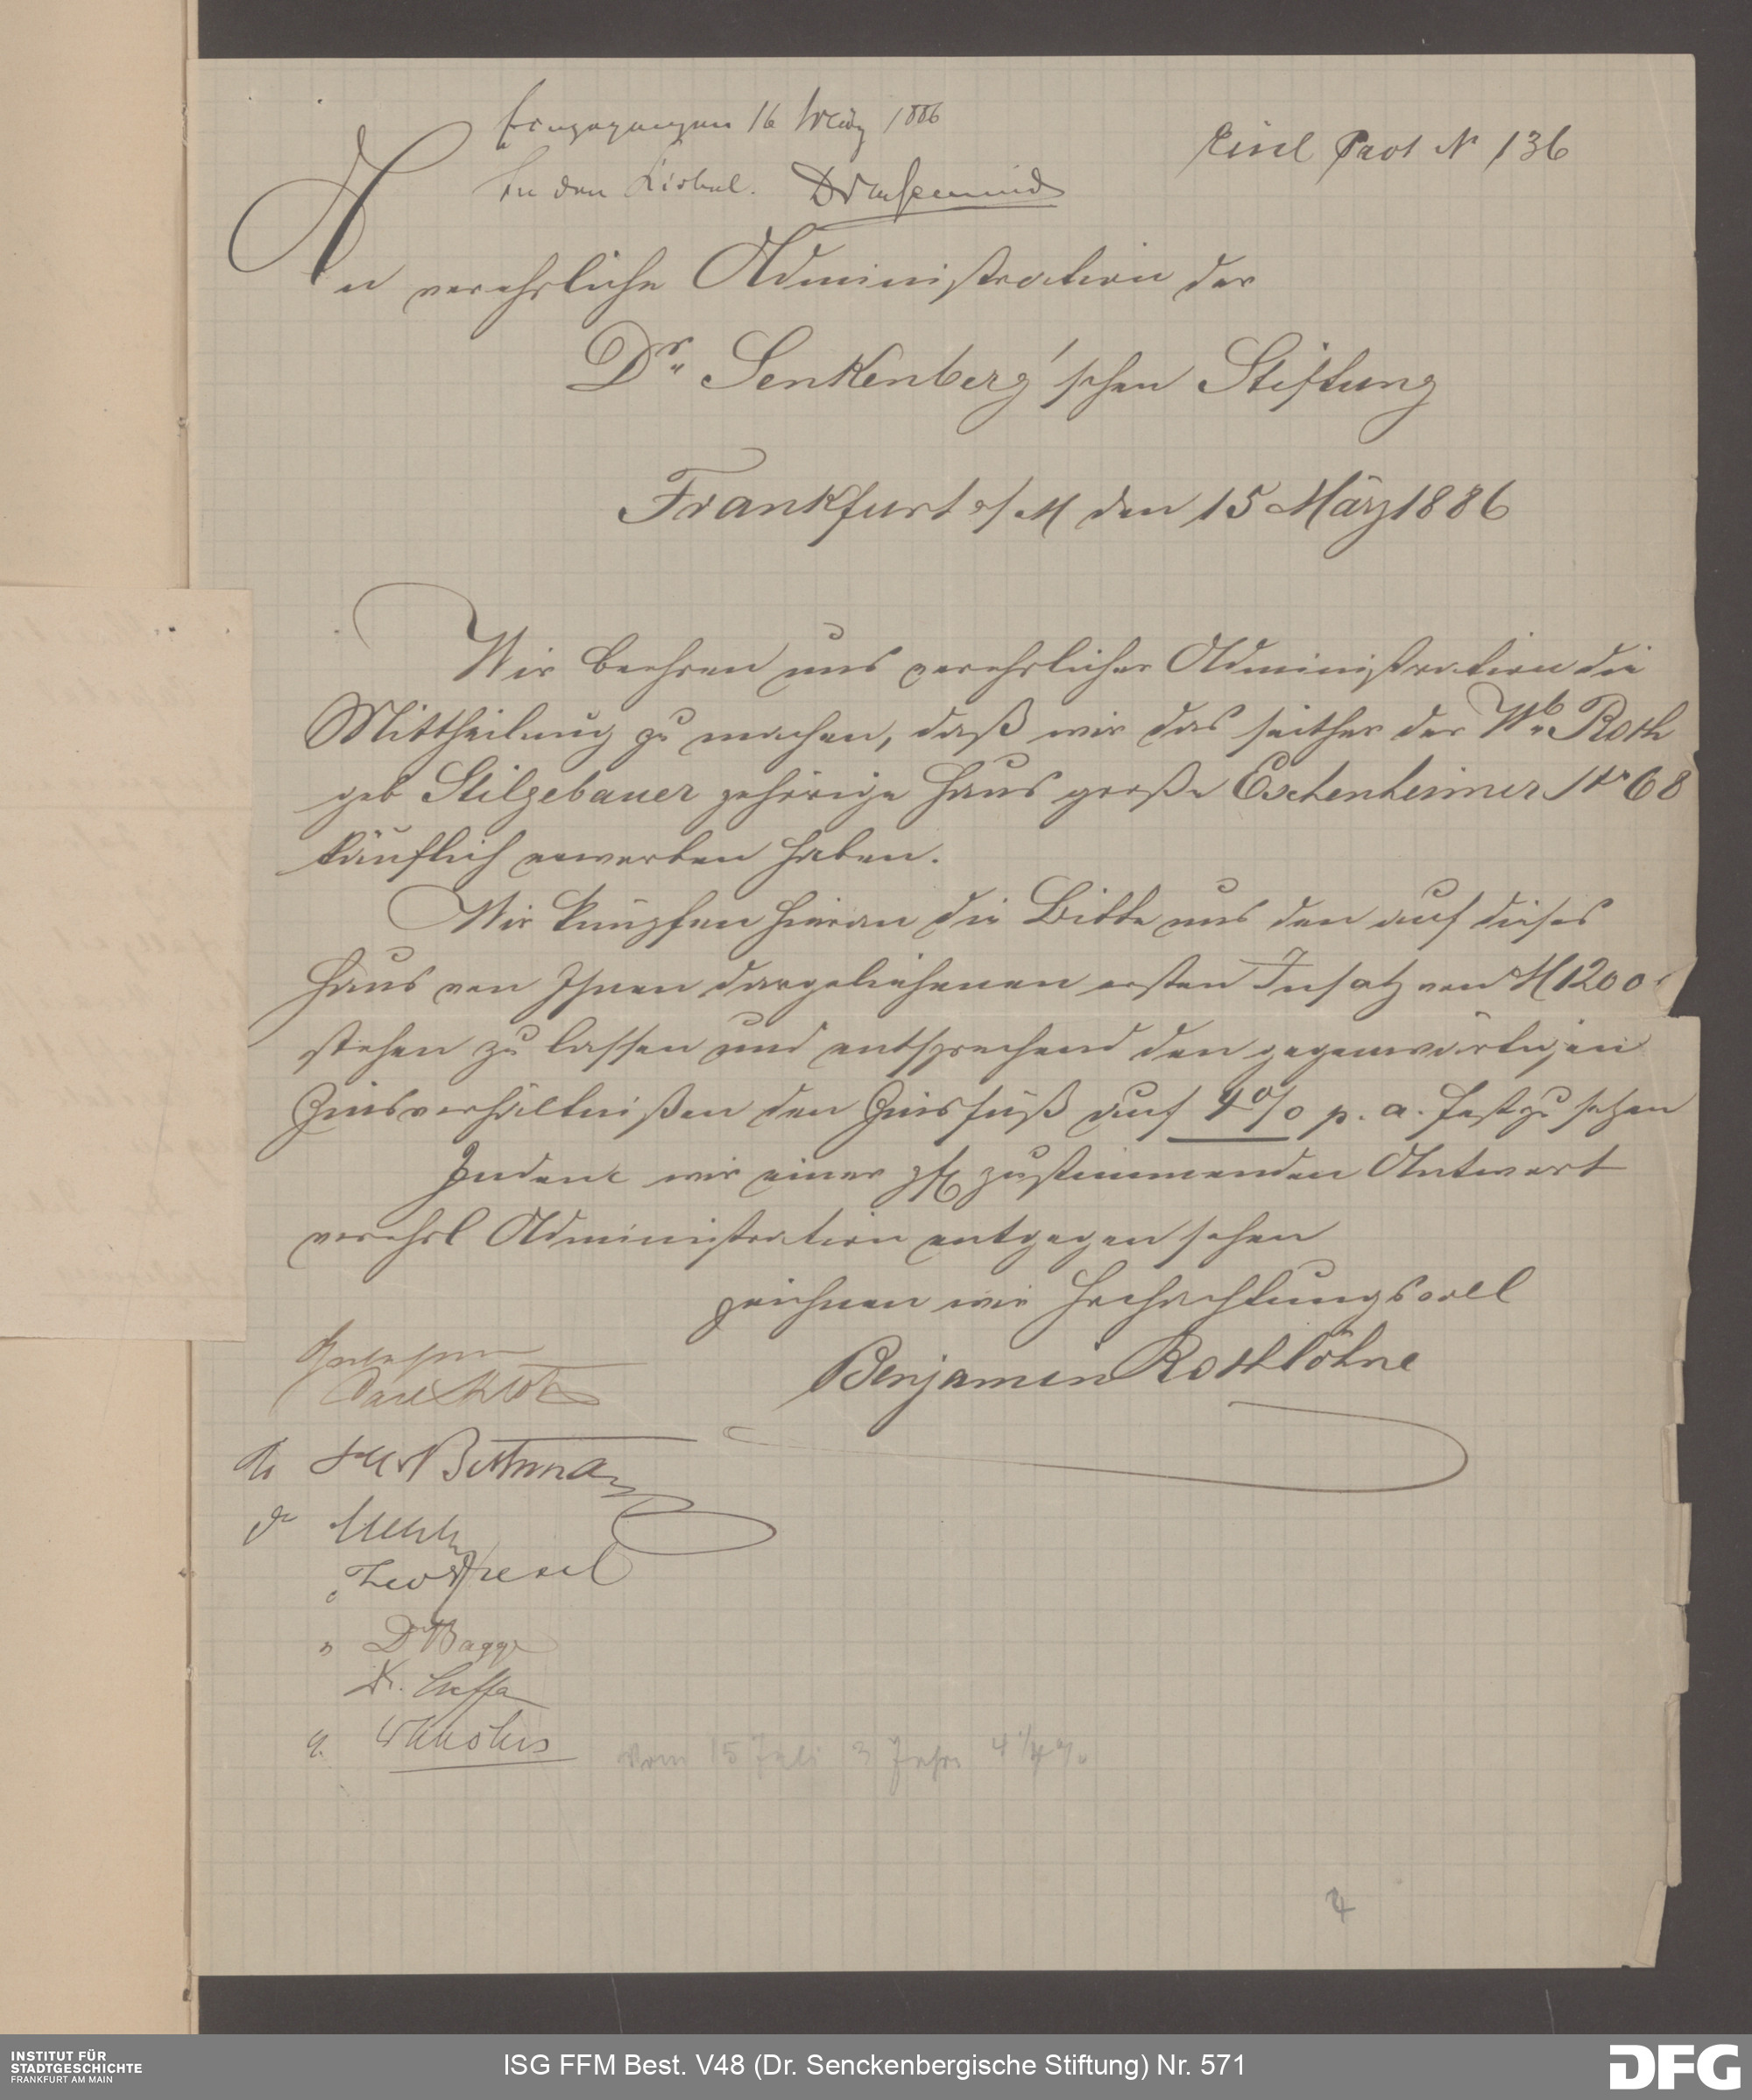 Eingegangen 16 März 1886
Einl Prot No 136
In den Cirkul.
An verehrliche Administration der
Dr. Senkenberg'schen Stiftung
Frankfurt a/M den 15 März 1886
Wir beehren uns verehrlicher Administration die
Mittheilung zu machen, daß wir das seither der Wb. Roth
geb Stilgebauer gehörige Haus große Eschenheimer Str 68
käuflich erworben haben.
Wir knüpfen hieran die Bitte uns den auf dieses
Haus von Ihnen dargeliehenen ersten Insatz von M 1200
stehen zu lassen und entsprechend den gegenwärtigen
Zinsverhältnißen den Zinsfuß auf 4% p. a. festzusetzen
Indem wir einer gfl zustimmenden Antwort
verehrl Administration entgegen sehen
zeichnen wir Hochachtungsvoll
Benjamin Roth Söhne
Gelesen
Bethmann
Dr Bagge
vom 15 Juli 3 Jahre 4 1/4 %
INSTITUT FÜR
STADTGESCHICHTE
FRANKFURT AM MAIN
ISG FFM Best. V48 (Dr. Senckenbergische Stiftung) Nr. 571
DFG